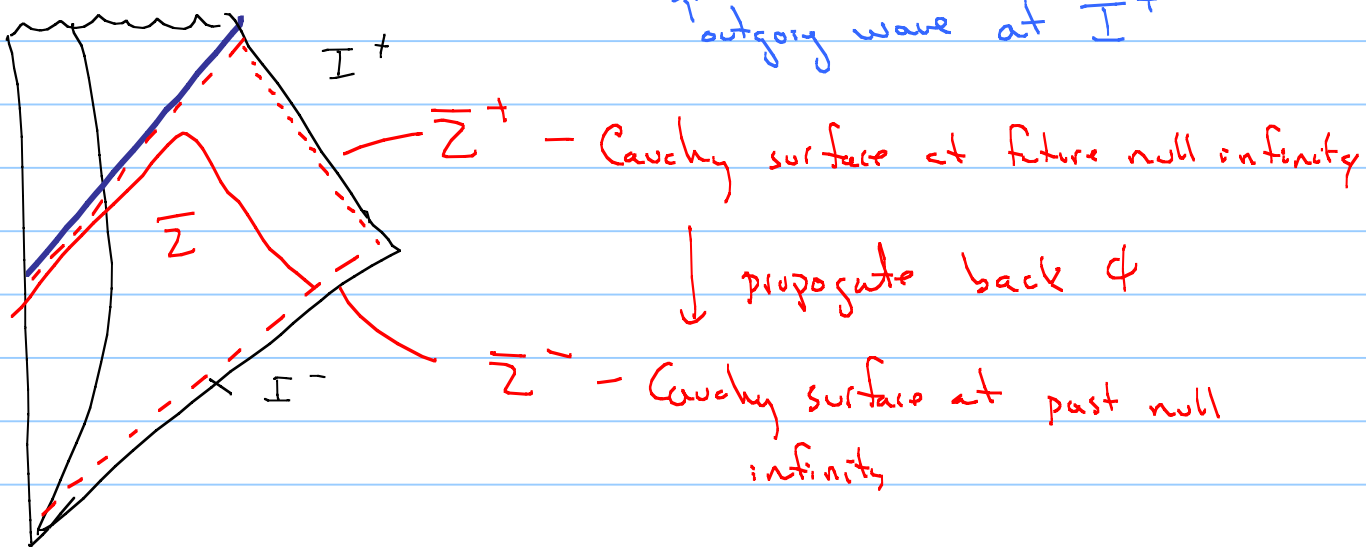 outgoing wave at I⁺
I⁺
Σ⁺ – Cauchy surface at future null infinity
Σ
propogate back ϕ
Σ⁻ – Cauchy surface at past null
I⁻
infinity